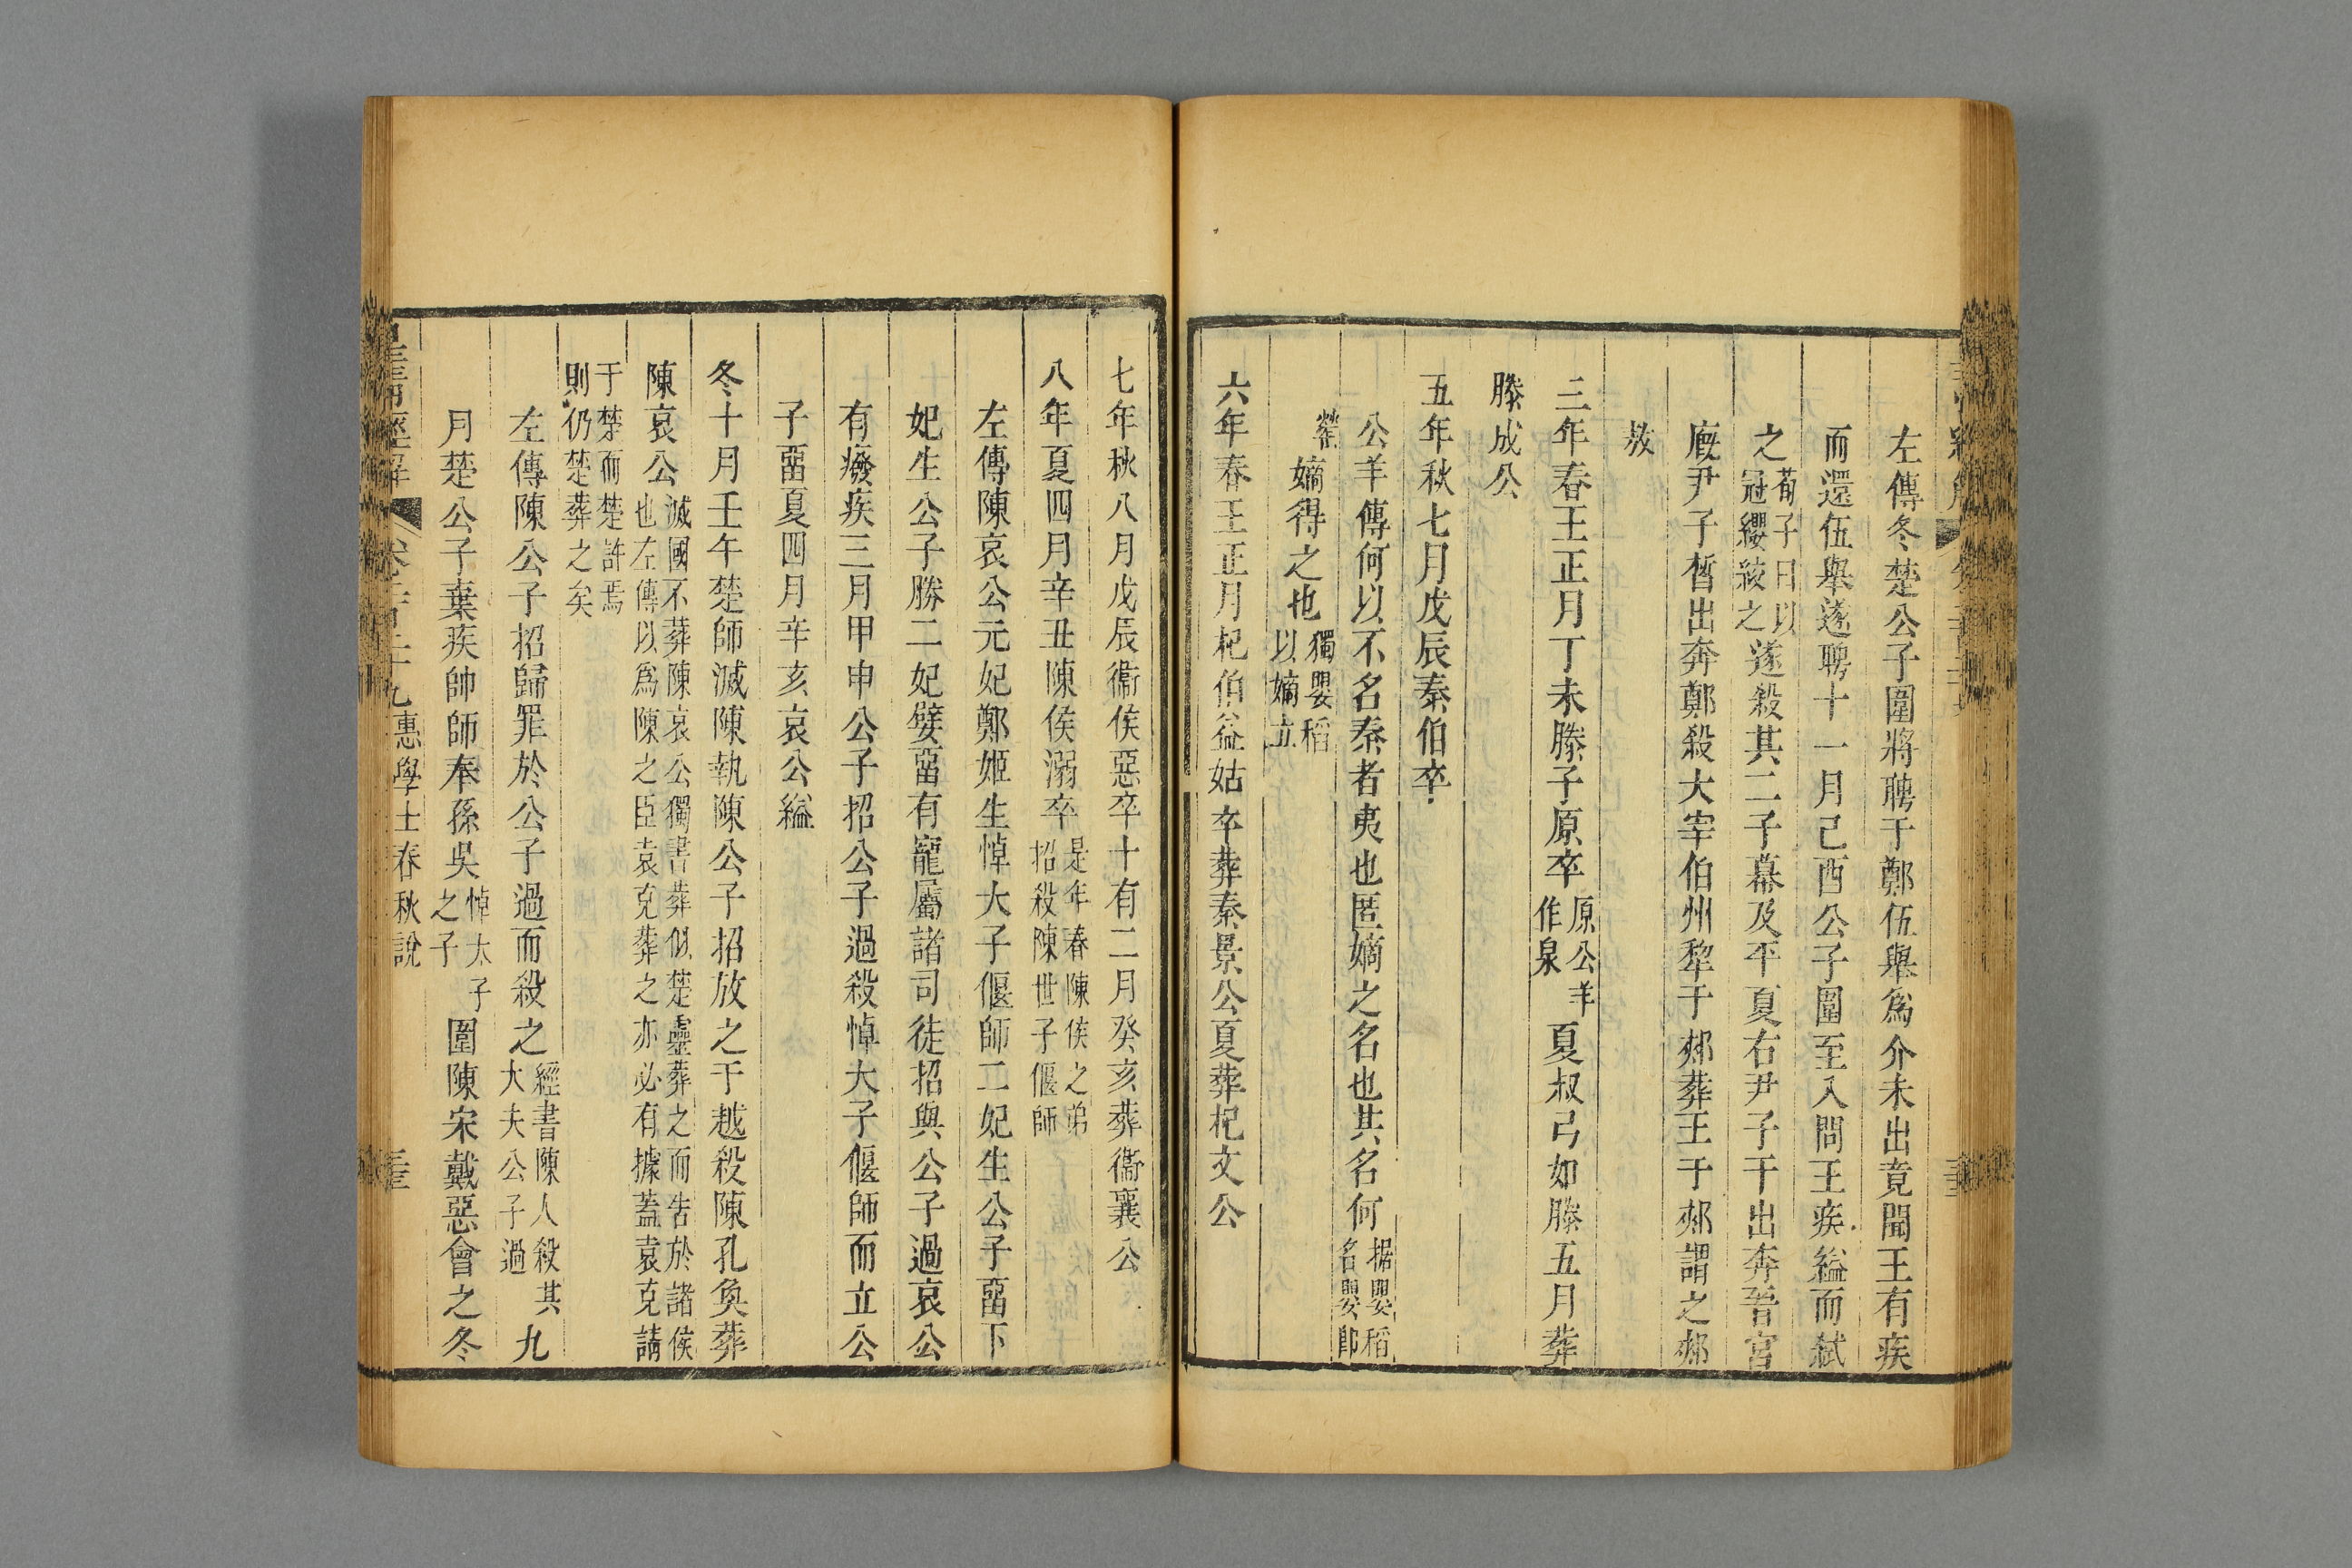 左傳冬楚公子圍將聘于鄭伍舉爲介未出竟聞王有疾
而還伍舉遂聘十一月己酉公子圍至入問王疾縊而弑
之荀子曰以冠纓絞之遂殺其二子幕及平夏右尹子干出奔晉宮
廄尹子晳出奔鄭殺大宰伯州犂于郟葬王于郟謂之郟
敖
三年春王正月丁未滕子原卒原公羊作泉夏叔弓如滕五月葬
滕成公
五年秋七月戊辰秦伯卒
公羊傳何以不名秦者夷也匿嫡之名也其名何据嬰稻名嬰卽
罃嫡得之也獨嬰稻以嫡立
六年春王正月杞伯益姑卒葬秦景公夏葬杞文公
七年秋八月戊辰衞侯惡卒十有二月癸亥葬衞襄公
八年夏四月辛丑陳侯溺卒是年春陳侯之弟招殺陳世子偃師
左傳陳哀公元妃鄭姬生悼大子偃師二妃生公子畱下
妃生公子勝二妃嬖畱有寵屬諸司徒招與公子過哀公
有癈疾三月甲申公子招公子過殺悼大子偃師而立公
子畱夏四月辛亥哀公縊
冬十月壬午楚師滅陳執陳公子招放之于越殺陳孔奐葬
陳哀公滅國不葬陳哀公獨書葬似楚靈葬之而告於諸侯也左傳以爲陳之臣袁克葬之亦必有據蓋袁克請
于楚而楚許焉則仍楚葬之矣
左傳陳公子招歸罪於公子過而殺之經書陳人殺其大夫公子過九
月楚公子棄疾帥師奉孫吳悼太子之子圍陳宋戴惡會之冬
惠學士春秋說